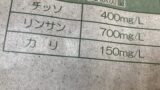 チッソ 400mg/L
リンサン 700mg/L
カリ 150mg/L